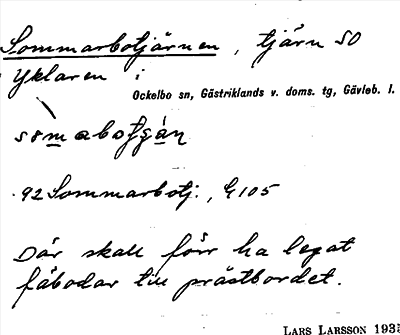 Sommarbotjärnen, tjärn SO
Yklaren i
Ockelbo sn, Gästriklands v. doms. tg, Gävleb. l.
92 Sommarbotj., G 105
Där skall förr ha legat
fäbodar till prästbordet.
LARS LARSSON 193